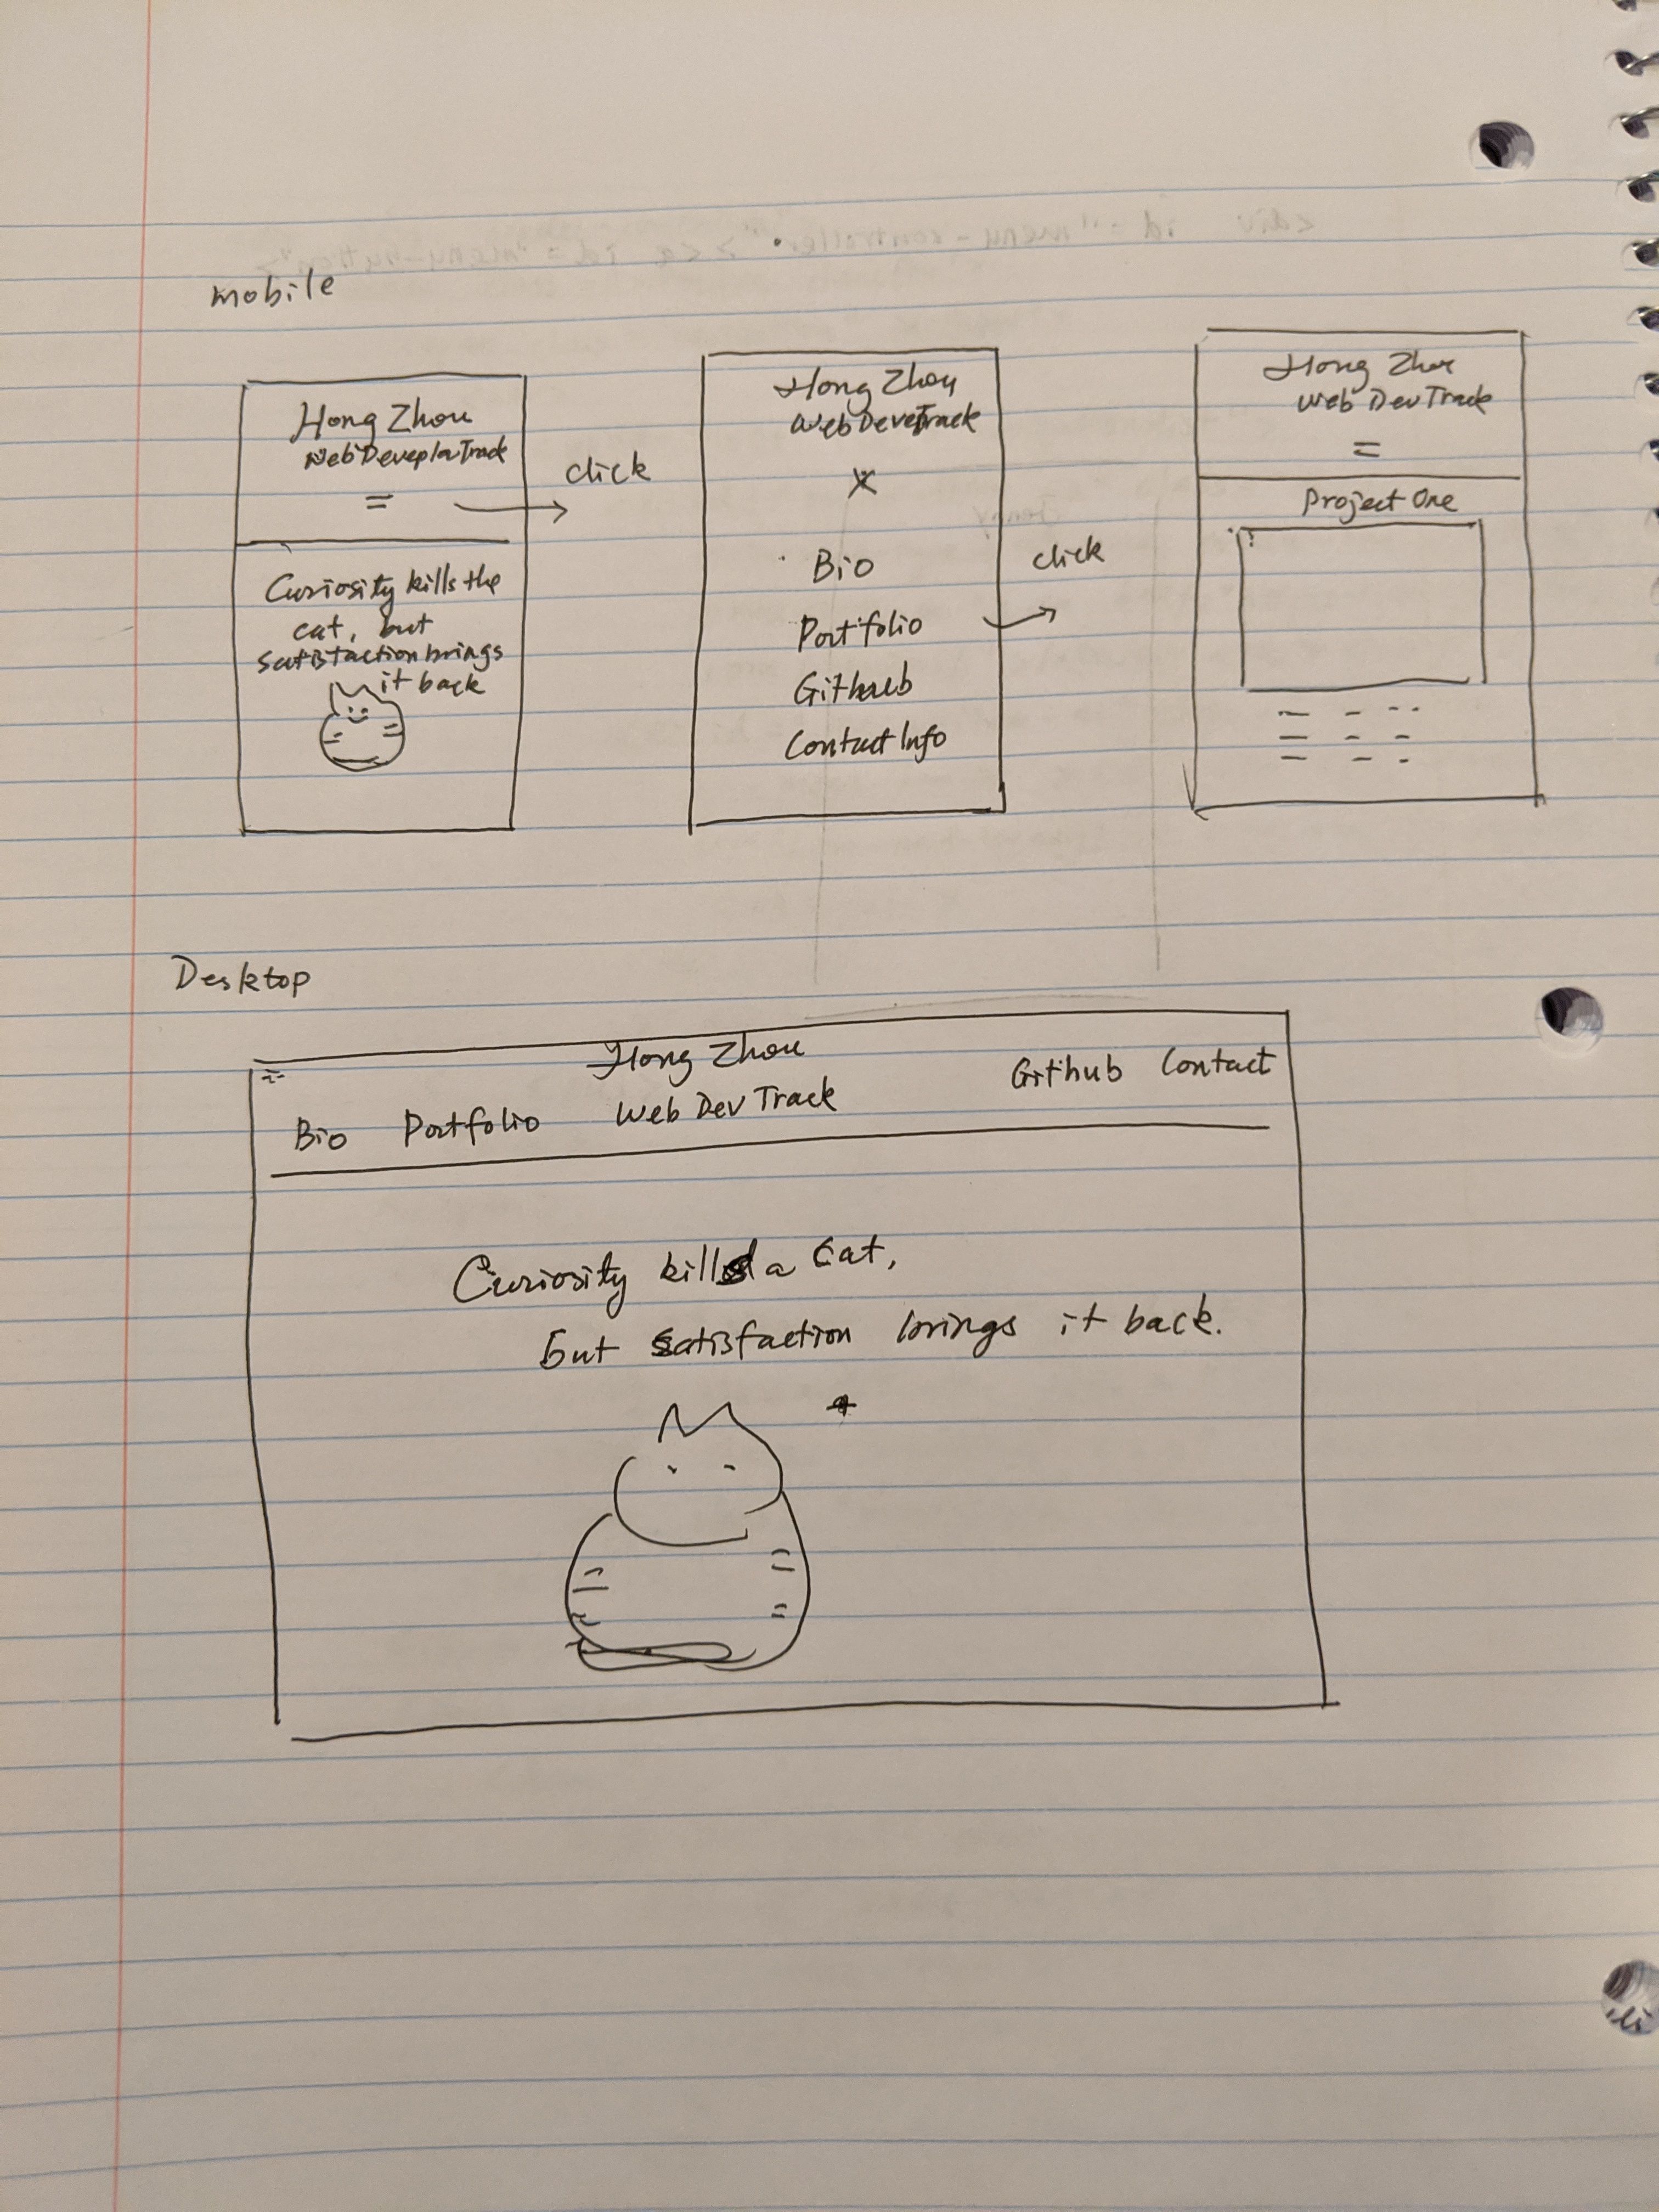 mobile
Hong Zhou
Web Deveplor Track
=
click
Curiosity kills the
cat, but
satisfaction brings
it back
Hong Zhou
Web Dev Track
X
Bio
Portfolio
Github
Contact Info
click
Hong Zhou
Web Dev Track
=
Project One
Desktop
Hong Zhou
Bio Portfolio Web Dev Track Github Contact
Curiosity kills a cat,
but satisfaction brings it back.